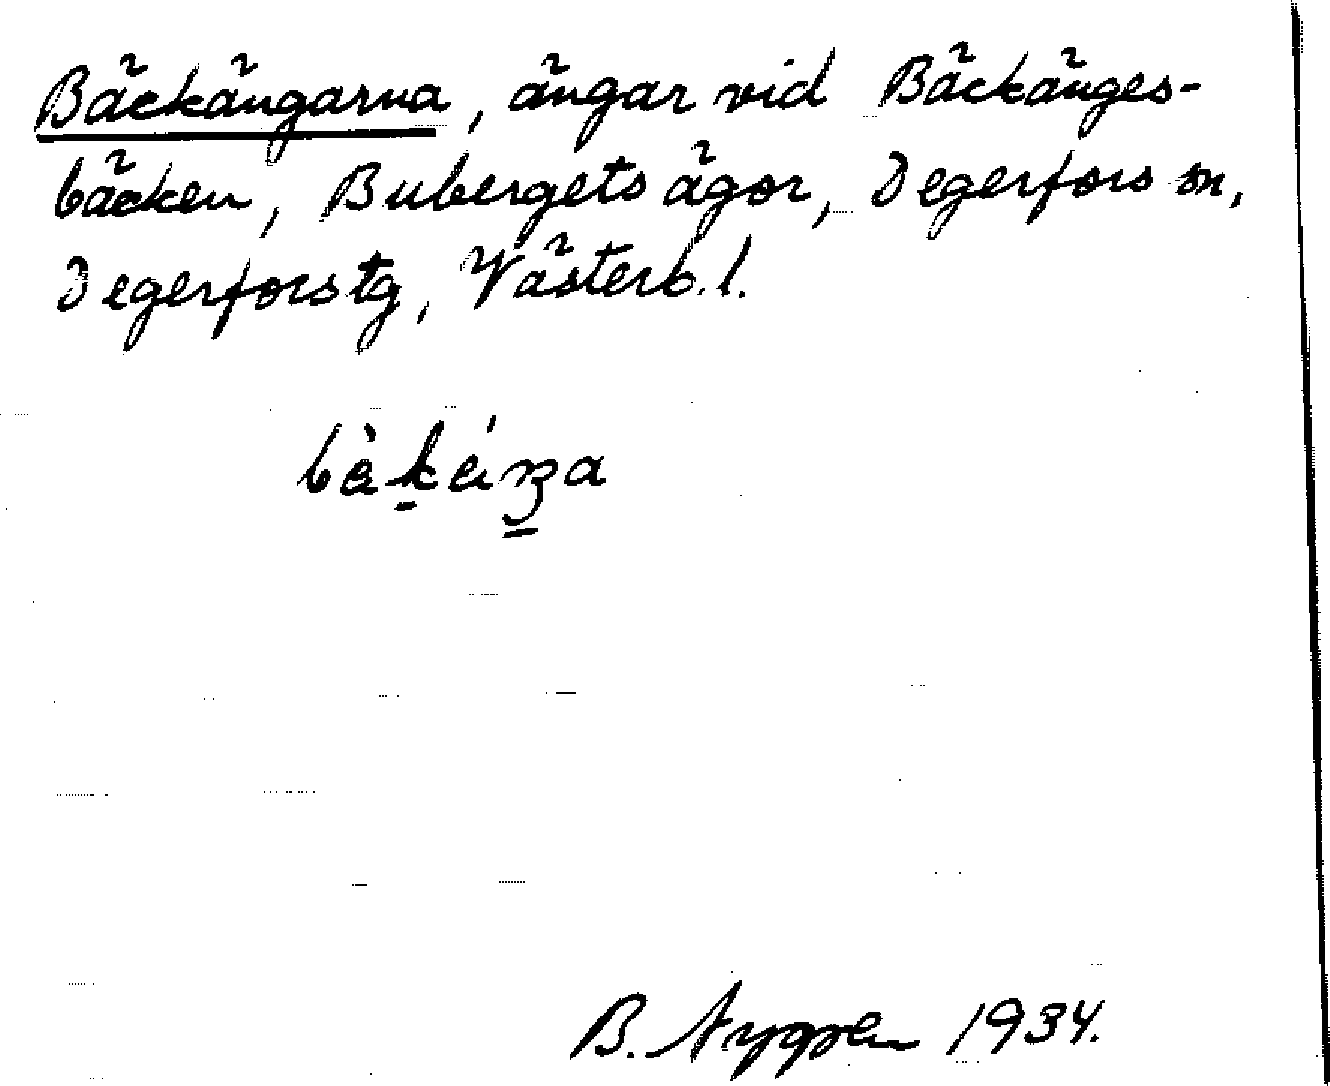 Bäckängarna, ängar vid Bäckänges-
bäcken, Bubergets ägor, Degerfors sn,
Degerfors tg, Västerb. l.
B. Nygren 1934.